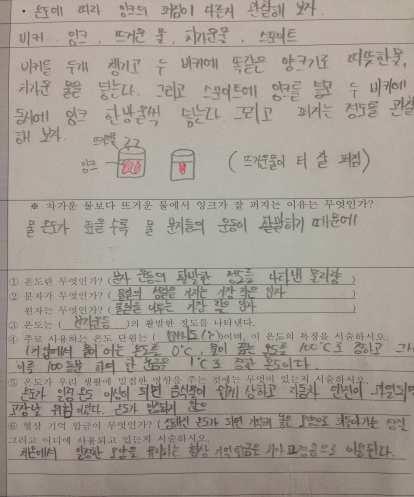 · 온도에 따라 잉크의 퍼짐이 다른지 관찰해 보자.
비커, 잉크, 뜨거운 물, 차가운물, 스포이트
비커를 두개 챙기고 두 비커에 똑같은 양크기로 따뜻한물,
차가운 물을 넣는다. 그리고 스포이트에 잉크를 넣고 두 비커에
동시에 잉크 한방울씩 넣는다. 그리고 퍼지는 정도를 관찰
해 보자.
잉크
(뜨거운물이 더 잘 퍼짐)
※ 차가운 물보다 뜨거운 물에서 잉크가 잘 퍼지는 이유는 무엇인가?
물 온도가 높을 수록 물 분자들의 운동이 활발하기 때문에
① 온도란 무엇인가? (분자 운동의 활발한 정도를 나타낸 물리량)
② 분자가 무엇인가? (물질의 성질을 가지는 가장 작은 입자)
원자는 무엇인가? (물질을 이루는 가장 작은 입자)
③ 온도는 (분자운동)의 활발한 정도를 나타낸다.
④ 주로 사용하는 온도 단위는 ( )이며, 이 온도의 특징을 서술하시오.
1기압에서 물이 어는 온도를 0℃, 물이 끓는 온도를 100℃로 정하고 그
이를 100등분 하여 한 눈금을 1℃로 정한 온도이다.
⑤ 온도가 우리 생활에 밀접한 영향을 주는 것에는 무엇이 있는지 서술하시오.
온도가 일정 온도 이상이 되면 음식물이 쉽게 상하고 자동차 엔진이 과열되면
고장날 위험
⑥ 형상 기억 합금이 무엇인가? ( 온도가 되면 기억된 모양으로 되돌아가는 합금
그리고 어디에 사용되고 있는지 서술하시오.
치과에서 일정한 모양을 유지하는 형상 기억 합금을 치아 교정용으로 이용된다.